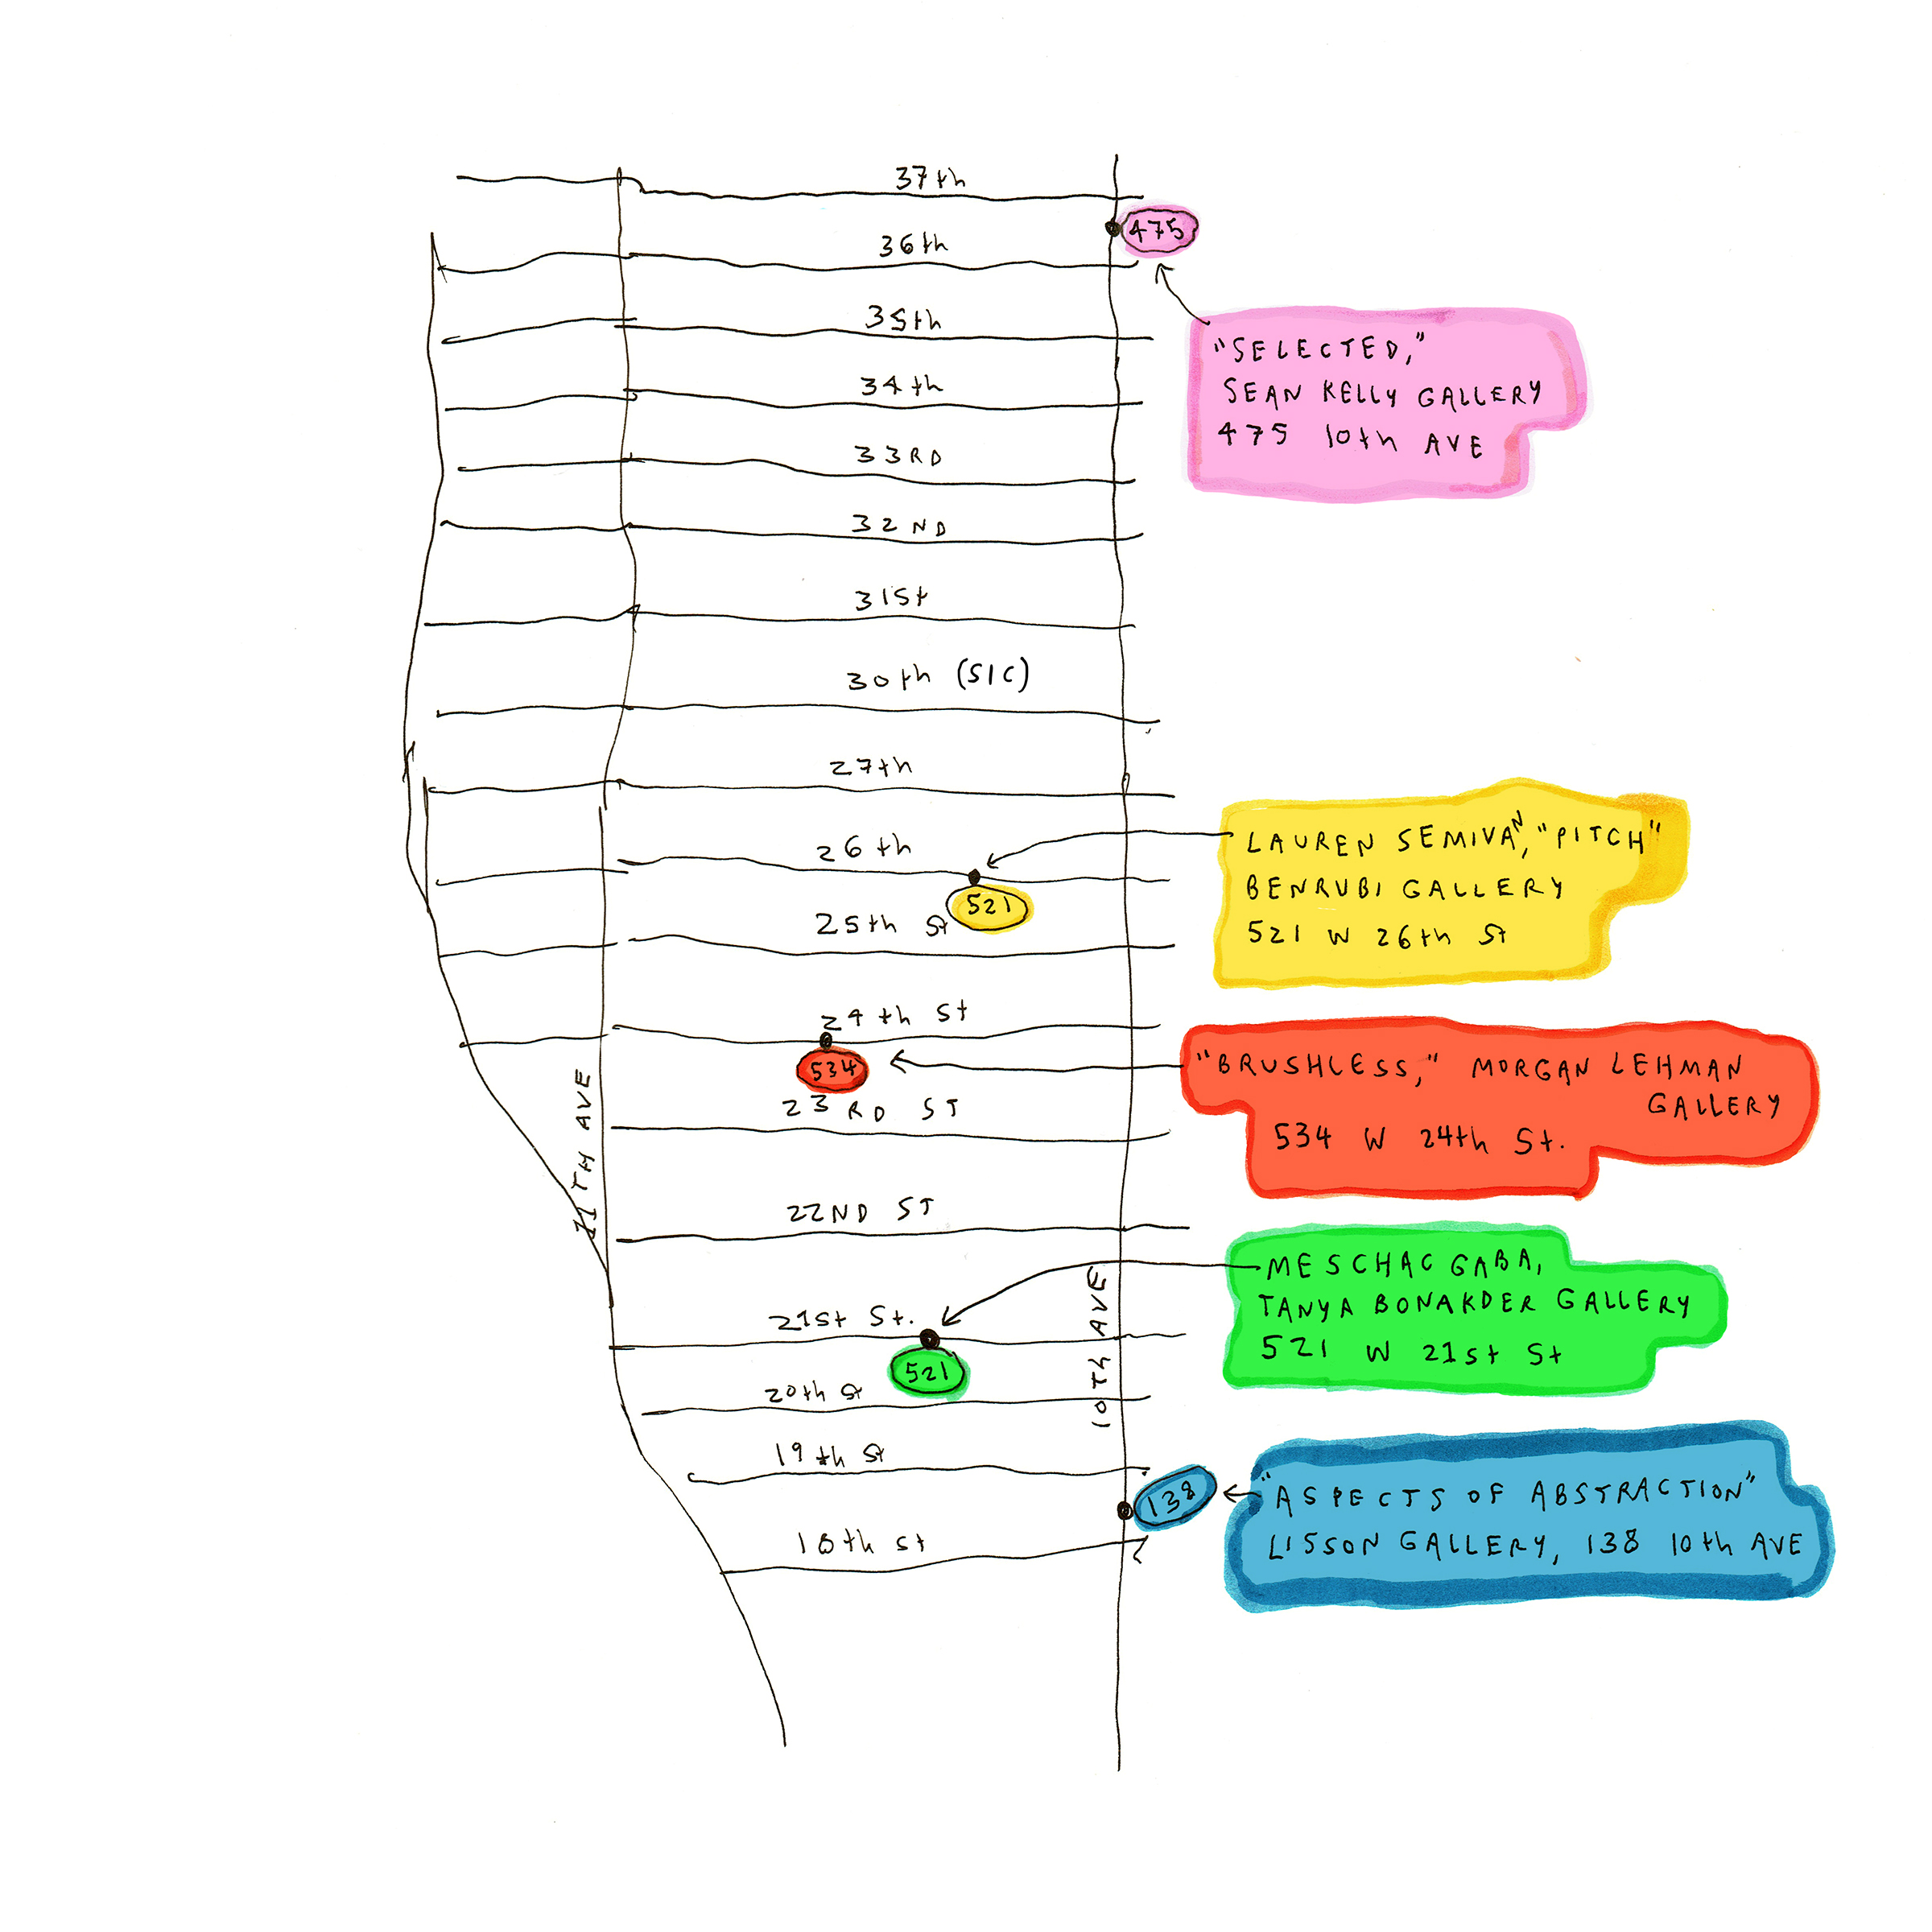 37th
475
36th
35th
"SELECTED,"
SEAN KELLY GALLERY
475 10th AVE
34th
33RD
32ND
31St
30th (SIC)
27th
LAUREN SEMIVAN, "PITCH"
BENRUBI GALLERY
521 W 26th St
26th
521
25th St
24th St
534
"BRUSHLESS," MORGAN LEHMAN
GALLERY
534 W 24th St.
23RD ST
11TH AVE
22ND ST
MESCHAC GABA,
TANYA BONAKDER GALLERY
521 W 21st St
10TH AVE
21st St.
521
20th St
19th St
138
"ASPECTS OF ABSTRACTION"
LISSON GALLERY, 138 10th AVE
18th St